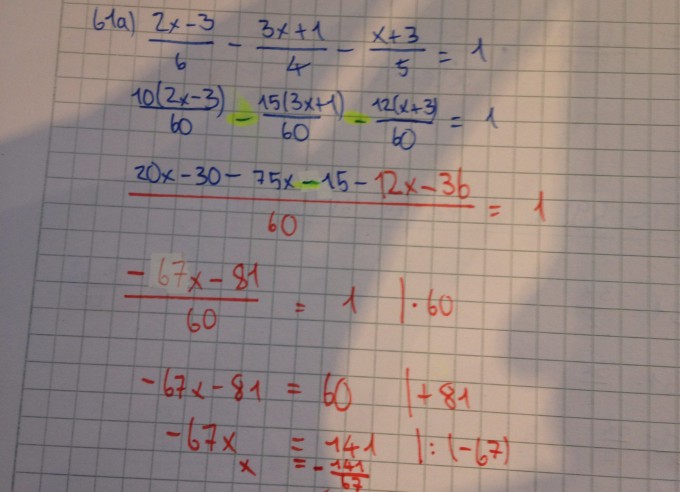 61a) (2x-3)/6 - (3x+1)/4 - (x+3)/5 = 1
10(2x-3)/60 - 15(3x+1)/60 - 12(x+3)/60 = 1
(20x-30-75x-15-12x-36)/60 = 1
(-67x-81)/60 = 1 |·60
-67x-81 = 60 |+81
-67x = 141 |:(-67)
x = -141/67